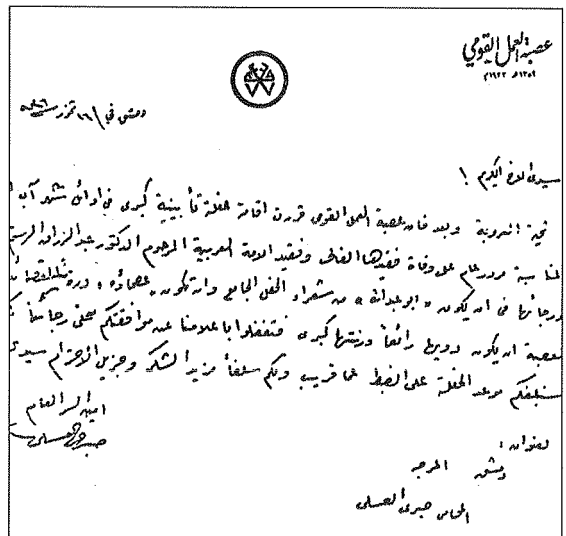 عصبة العمل القومي
دمشق في ١٦ تموز
سيدي الاخ الكريم !
تحية العروبة وبعد فان عصبة العمل القومي قررت اقامة حفلة تأبينية كبرى في اوائل شهر آب
لمناسبة مرور عام على وفاة فقيدها الغالي وفقيد الامة العربية المرحوم الدكتور عبد الرزاق
ورجائها في ان يكون « ابو عبدالله » من شعراء الحفل الجامع وان تكون
لعصبة ان يكون دويها رائعاً ورنتها كبرى فتفضلوا باعلامنا عن موافقتكم
سنبلغكم موعد الحفلة على الضبط عما قريب ولكم سلفاً مزيد الشكر وجزيل الاحترام سيدي
امين السر العام
صبري العسلي
العنوان :
دمشق المرجه
المحامي صبري العسلي